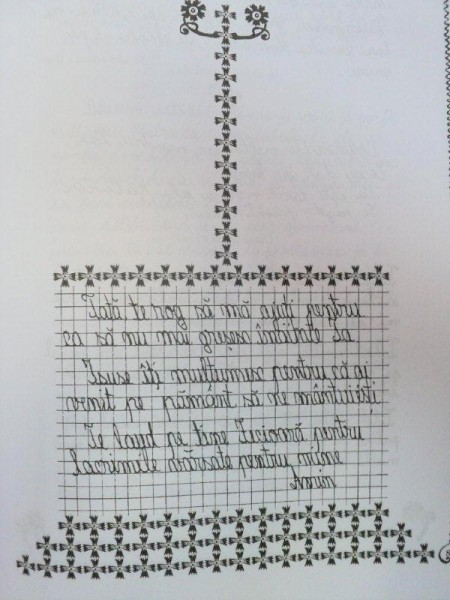 Tată te rog să mă ajuți pentru
ca să nu mai greșesc înaintea Ta
Isuse îți mulțumesc pentru că ai
venit pe pământ să ne mântuiești
Te laud pe tine Fecioară pentru
lacrimile vărsate pentru mine
Amin